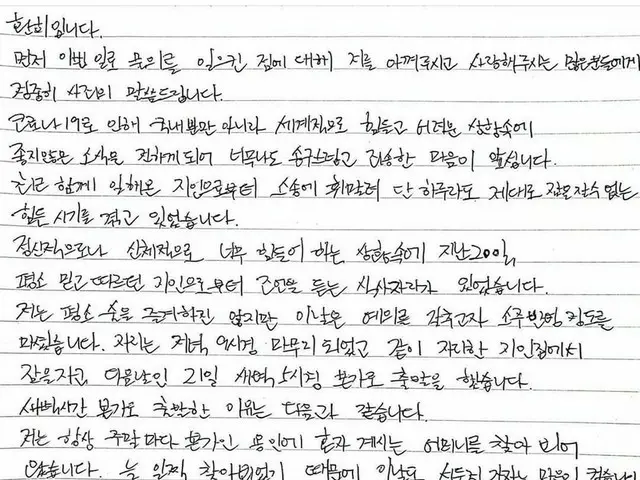 환희입니다.
먼저 이번 일로 물의를 일으킨 점에 대해 저를 아껴주시고 사랑해주시는 많은분들에게
정중히 사과의 말씀드립니다.
코로나19로 인해 국내뿐만 아니라 세계적으로 힘들고 어려운 상황속에
좋지않은 소식을 전하게 되어 너무나도 송구스럽고 죄송한 마음이 앞섭니다.
최근 함께 일해온 지인으로부터 소송에 휘말려 단 하루라도 제대로 잠을 잘수 없는
힘든 시기를 겪고 있었습니다.
정신적으로나 신체적으로 너무 힘들어 하는 상황속에 지난 20일,
평소 믿고 따르던 지인으로부터 조언을 듣는 식사자리가 있었습니다.
저는 평소 술을 즐겨하진 않지만 이날은 예의를 갖추고자 소주 반병 정도를
마셨습니다. 자리는 저녁 9시경 마무리 되었고 같이 자리한 지인집에서
잠을자고 다음날인 21일 새벽 5시경 본가로 출발을 했습니다.
새벽시간 본가로 출발한 이유는 다음과 같습니다.
저는 항상 주말마다 본가인 용인에 혼자 계시는 어머니를 찾아 뵈어
왔습니다. 늘 일찍 찾아뵈었기 때문에 이날도 서둘러 가자는 마음이 컸습니다